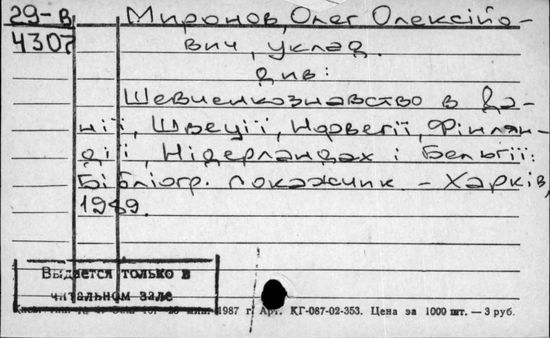 29-В Миронов, Олег Олексійо-
4307 вич, уклад.
див:
Шевченкознавство в Да-
нії, Швеції, Норвегії, Фінлян-
дії, Нідерландах і Бельгії:
Бібліогр. покажчик. – Харків,
1989.
Выдается только в
читальном зале
1987 г. Арт. КГ-087-02-353. Цена за 1000 шт. — 3 руб.